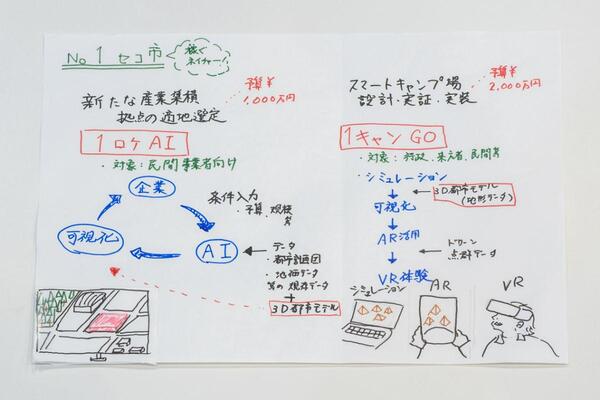 No 1 セコ市
稼ぐ
ネイチャー!
予算¥
1,000万円
新たな産業集積
拠点の適地選定
1ロケAI
・対象:民間事業者向け
企業
条件入力
・予算、規模
等
AI
可視化
データ
・都市計画図
・地価データ
等の既存データ
+
3D都市モデル
予算¥
2,000万円
スマートキャンプ場
設計・実証・実装
1キャンGO
・対象:行政、来訪者、民間者
・シミュレーション
3D都市モデル
(地形データ)
可視化
AR活用
ドローン
点群データ
VR体験
シミュレーション
AR
VR